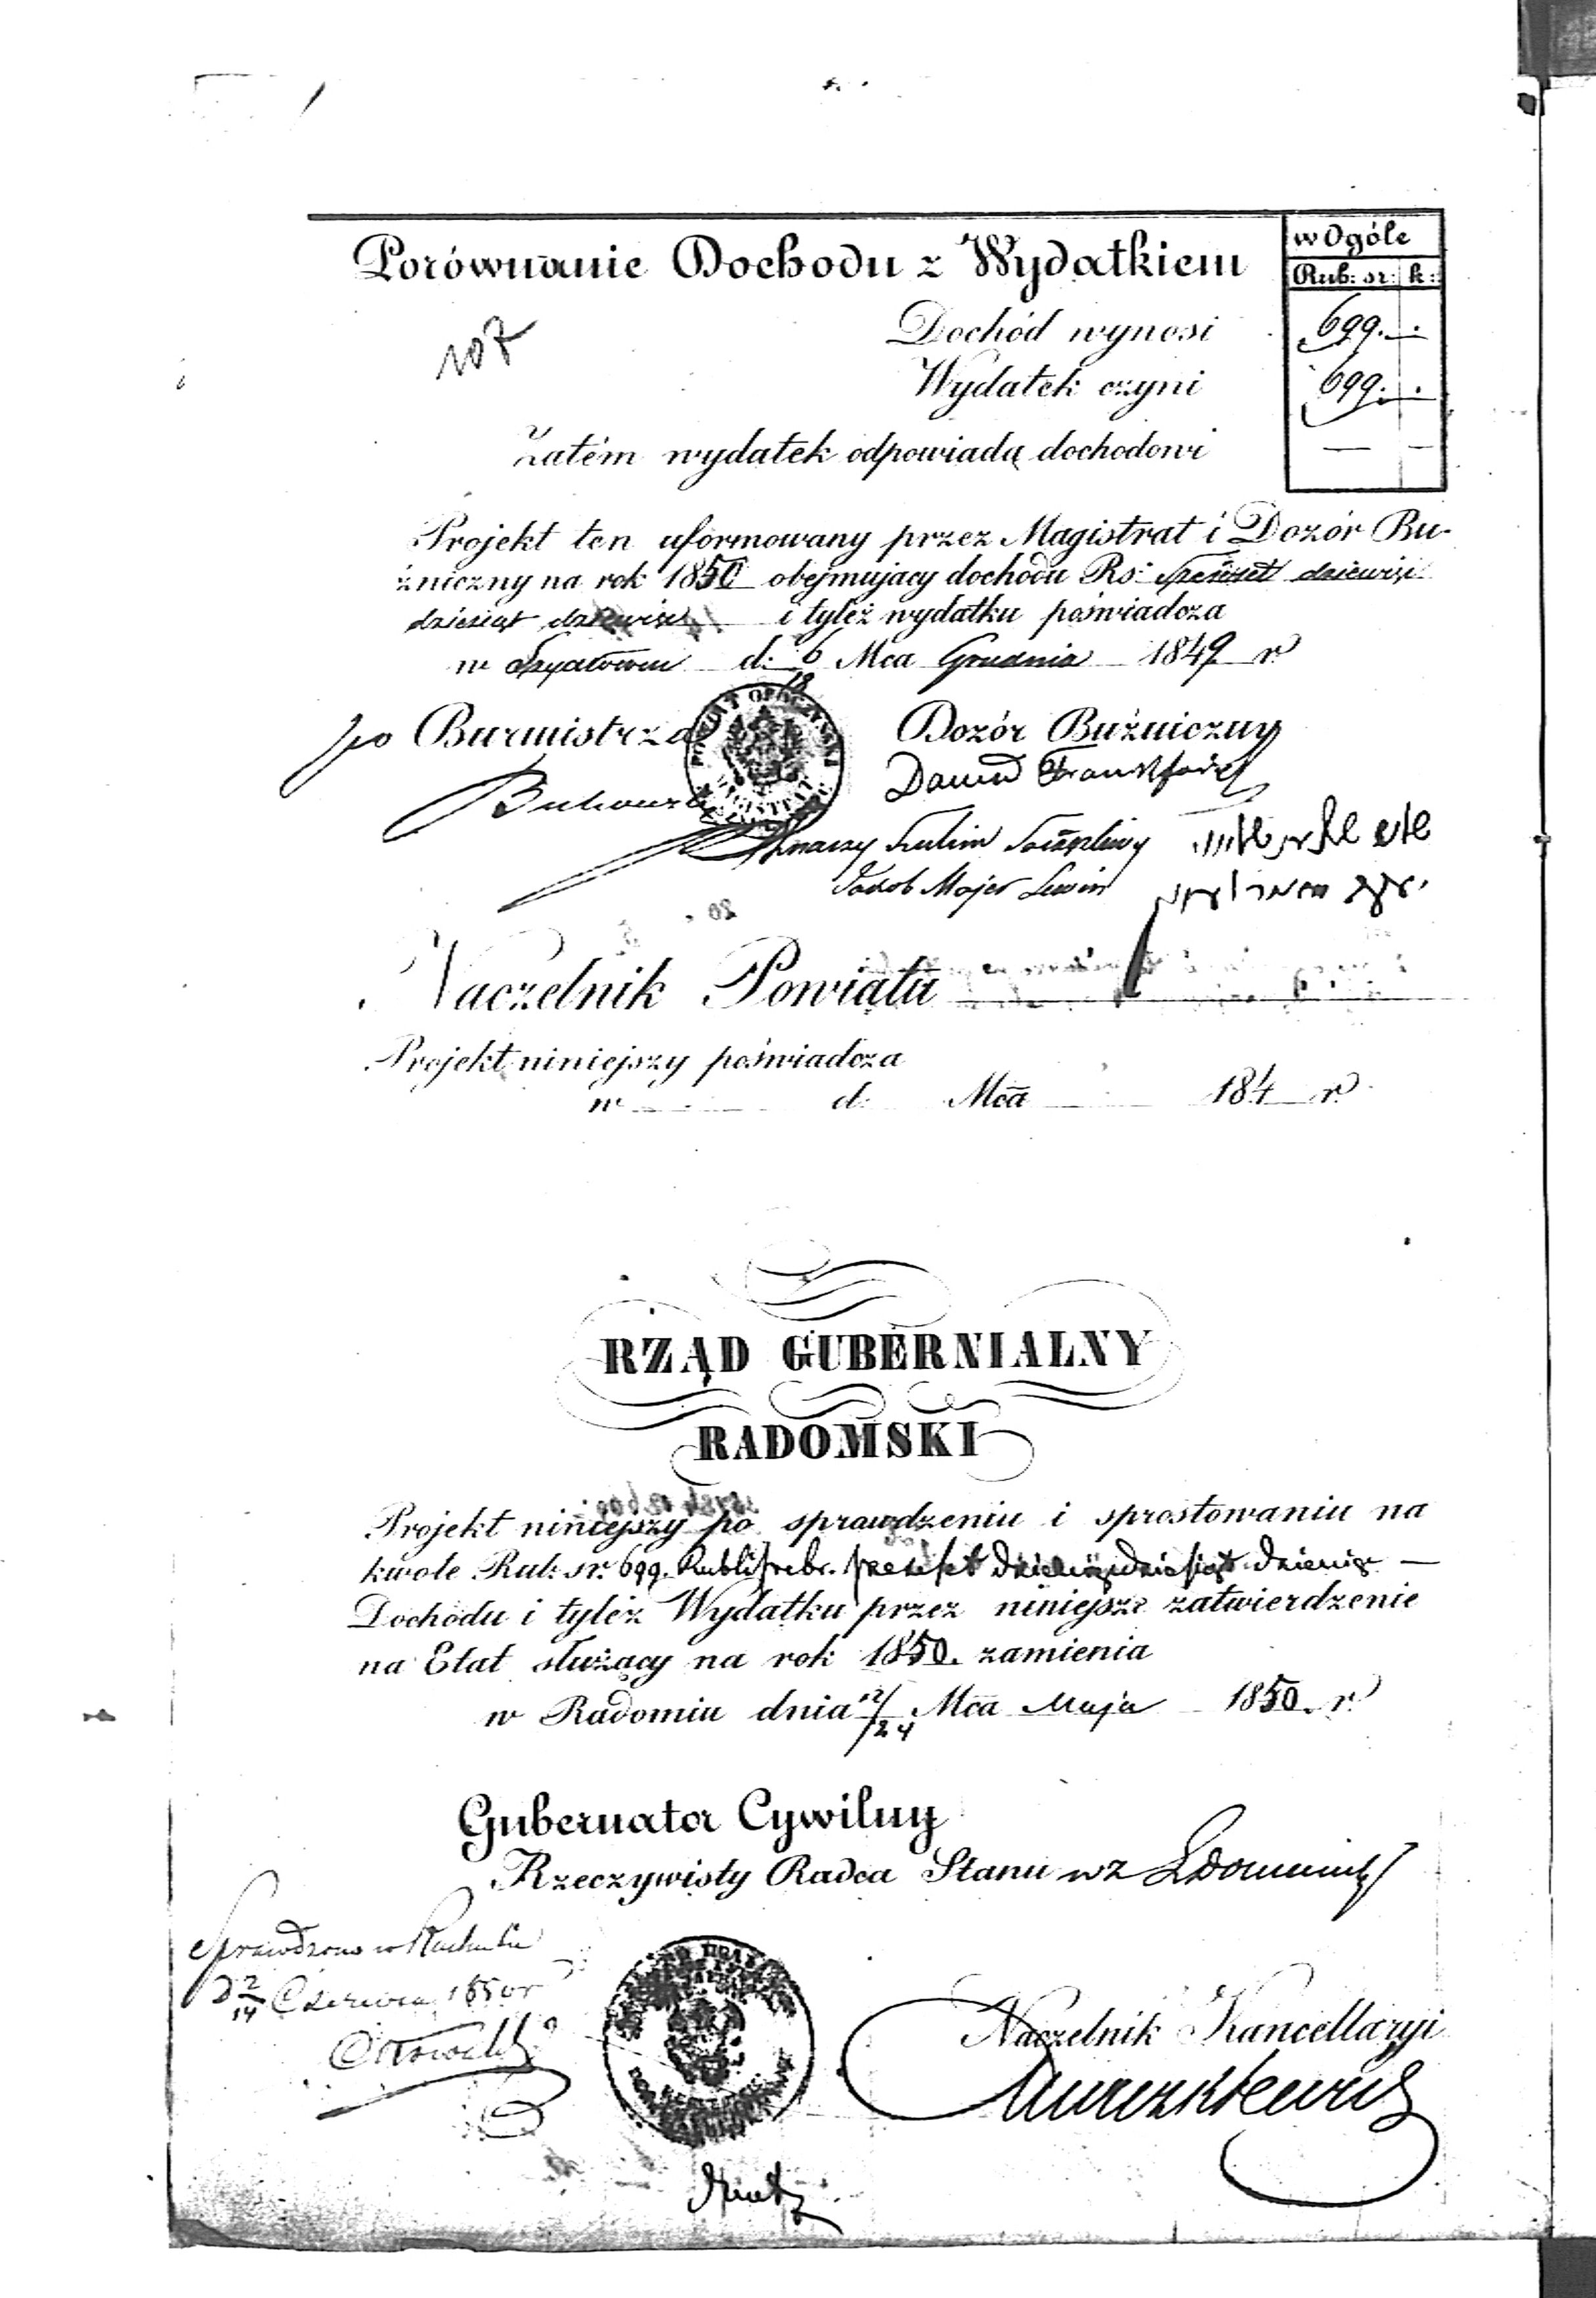 w Ogóle
Porównanie Dochodu z Wydatkiem
Rub: sr: k:
107
Dochód wynosi 699. .
Wydatek czyni 699. .
Zatém wydatek odpowiada dochodowi — —
Projekt ten uformowany przez Magistrat i Dozór Bu-
żniczny na rok 1850 obejmujący dochodu Rs: Sześćset dziewięć
dziesiąt dziewięć i tyleż wydatku poświadcza
w d: 6/18 Mca Grudnia 1849 r
po Burmistrza Dozór Bużniczny
POWIAT OPOCZYŃSKI
MAGISTRAT
Dawid
Jakob Majer Lewin
Naczelnik Powiatu
Projekt niniejszy poświadcza
w d: Mca 184 r
RZĄD GUBERNIALNY
RADOMSKI
Projekt niniejszy po sprawdzeniu i sprostowaniu na
kwotę Rub: sr: 699. Rubli srebr. sześćset dziewięćdziesiąt dziewięć —
Dochodu i tyleż Wydatku przez niniejsze zatwierdzenie
na Etat służący na rok 1850. zamienia
w Radomiu dnia 12/24 Mca Maja 1850. r.
Gubernator Cywilny
Rzeczywisty Radca Stanu wz
Sprawdzono w
D 2/14 Czerwca 1850 r
Naczelnik Kancellaryi